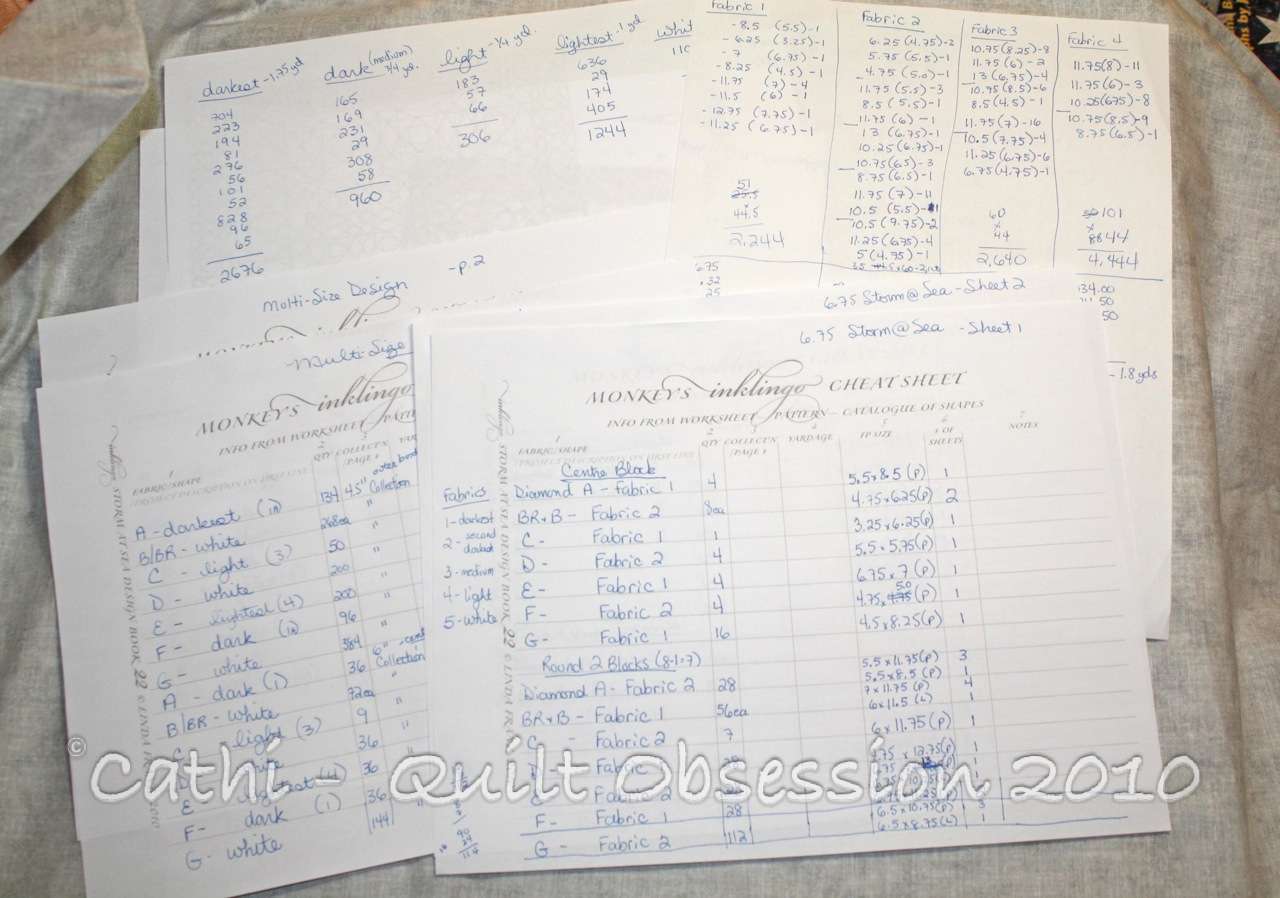 darkest - 1.75 yd
704
223
194
81
276
56
101
52
828
96
65
2676
dark (medium) 3/4 yd.
165
169
231
29
308
58
960
light - 1/4 yd.
183
57
66
306
lightest - 1 yd
636
29
174
405
1244
whit
110
Fabric 1
-8.5 (5.5)-1
-6.25 (3.25)-1
-7 (6.75)-1
-8.25 (4.5)-1
-11.75 (7)-4
-11.5 (6)-1
-12.75 (7.75)-1
-11.25 (6.75)-1
51
44.5
2,244
Fabric 2
6.25 (4.75)-2
5.75 (5.5)-1
4.75 (5.0)-1
11.75 (5.5)-3
8.5 (5.5)-1
11.75 (6)-1
13 (6.75)-1
10.25 (6.75)-1
10.75 (6.5)-3
8.75 (6.5)-1
11.75 (7)-11
10.5 (5.5)-1
10.5 (9.75)-2
11.25 (6.75)-4
5 (4.75)-1
Fabric 3
10.75 (8.25)-8
11.75 (6)-2
13 (6.75)-4
10.75 (8.5)-6
8.5 (4.5)-1
11.75 (7)-16
10.5 (7.75)-4
11.25 (6.75)-6
6.75 (4.75)-1
60
x
44
2,640
Fabric 4
11.75 (8)-11
11.75 (6)-3
10.25 (6.75)-8
10.75 (8.5)-9
8.75 (6.5)-1
101
x
44
4,444
675
x 32
25
134.00
50
50
- 1.8 yds
Multi-Size Design - p. 2
6.75 Storm@Sea - Sheet 2
- Multi-Size
MONKEY'S inklingo
INFO FROM WORKSHEET
1
FABRIC/SHAPE
(PROJECT DESCRIPTION ON FIRST LINE)
2
QTY
3
COLLECT'N
/PAGE #
YAR
A - darkest (1a) 134 4.5" Collection
B/BR - white 268ea "
C - light (3) 50 "
D - white 200 "
E - lightest (4) 200 "
F - dark (1a) 96 "
G - white 384
A - dark (1) 36 6" Collection
B/BR - white 72ea "
light (3) 9 "
white 36 "
E - lightest (4) 36 "
F - dark (1) 36
G - white 144
STORM AT SEA DESIGN BOOK 22 © LINDA FR
6.75 Storm@Sea - Sheet 1
MONKEY'S inklingo CHEAT SHEET
INFO FROM WORKSHEET PATTERN CATALOGUE OF SHAPES
1
FABRIC/SHAPE
(PROJECT DESCRIPTION ON FIRST LINE)
2
QTY
3
COLLECT'N
/PAGE #
4
YARDAGE
5
FP SIZE
6
# OF
SHEETS
7
NOTES
Fabrics
1 - darkest
2 - second darkest
3 - medium
4 - light
5 - white
Centre Block
Diamond A - Fabric 1 4 5.5 x 8.5 (P) 1
BR+B - Fabric 2 8ea 4.75 x 6.25 (P) 2
C - Fabric 1 1 3.25 x 6.25 (P) 1
D - Fabric 2 4 5.5 x 5.75 (P) 1
E - Fabric 1 4 6.75 x 7 (P) 1
F - Fabric 2 4 4.75 x 5.0 1
G - Fabric 1 16 4.5 x 8.25 (P) 1
Round 2 Blocks (8-1=7)
Diamond A - Fabric 2 28 5.5 x 11.75 (P) 3
5.5 x 8.5 (P) 1
BR+B - Fabric 1 56ea 7 x 11.75 (P) 4
6 x 11.5 (L) 1
C - Fabric 2 7 6 x 11.75 (P) 1
Fabric 1 12.75 (P) 1
F - Fabric 1 28
G - Fabric 2 112 6.5 x 10.75 (P) 3
6.5 x 8.75 (L) 1
STORM AT SEA DESIGN BOOK 22 © LINDA FR
© Cathi - Quilt Obsession 2010